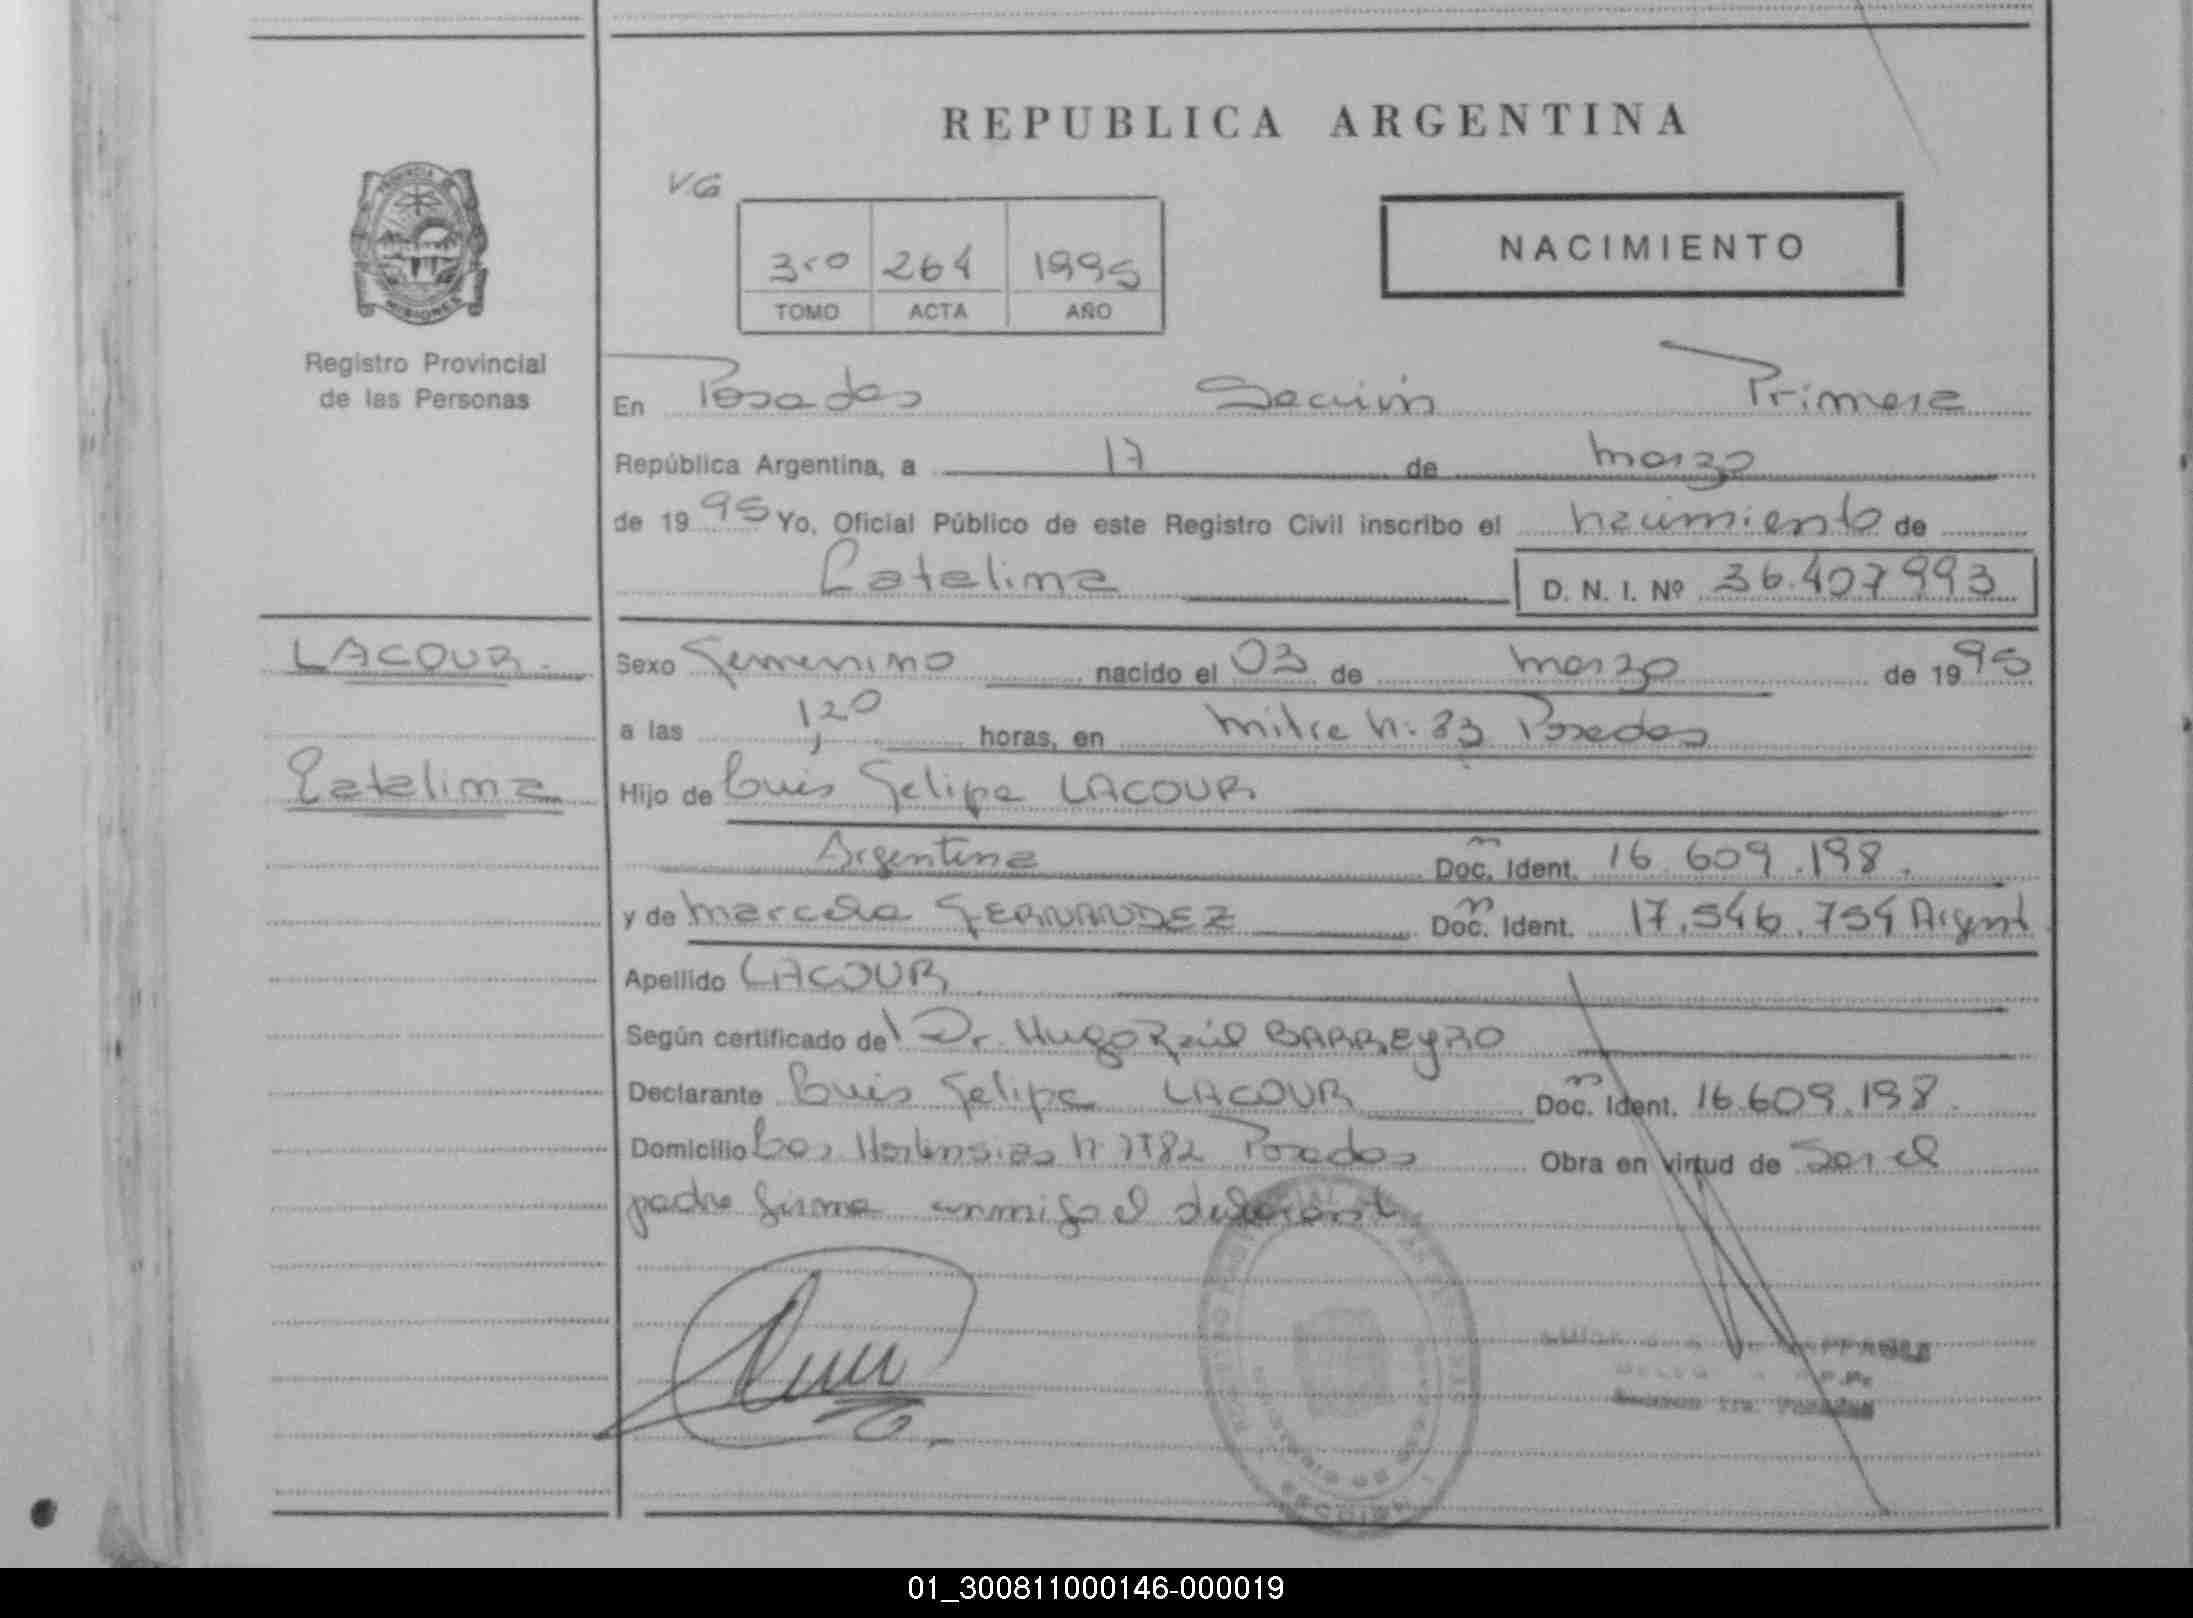 REPUBLICA ARGENTINA
VG
3ro 264 1995
TOMO ACTA AÑO
NACIMIENTO
PROVINCIA
MISIONES
Registro Provincial
de las Personas
En Posadas Sección Primera
República Argentina, a 17 de marzo
de 1995 Yo, Oficial Público de este Registro Civil inscribo el nacimiento de
Catalina D. N. I. Nº 36.407993
LACOUR.
Catalina
Sexo Femenino nacido el 03 de marzo de 1995
a las 1,20 horas, en Mitre N: 83 Posadas
Hijo de Luis Felipe LACOUR
Argentina Doc. Ident. 16.609.198.
y de Marcela FERNANDEZ Doc. Ident. 17.546.754 Argent
Apellido LACOUR
Según certificado del Dr. Hugo Raúl BARREYRO
Declarante Luis Felipe LACOUR Doc. Ident. 16.609.198.
Domicilio Las Hortensias Posadas Obra en virtud de Ser el
padre firma conmigo el
01_300811000146-000019